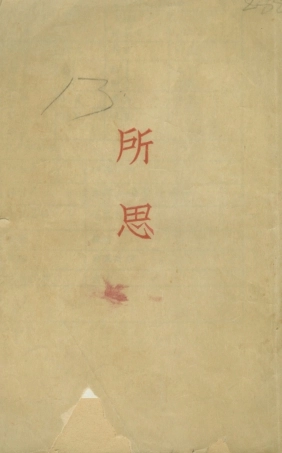 13
所
思